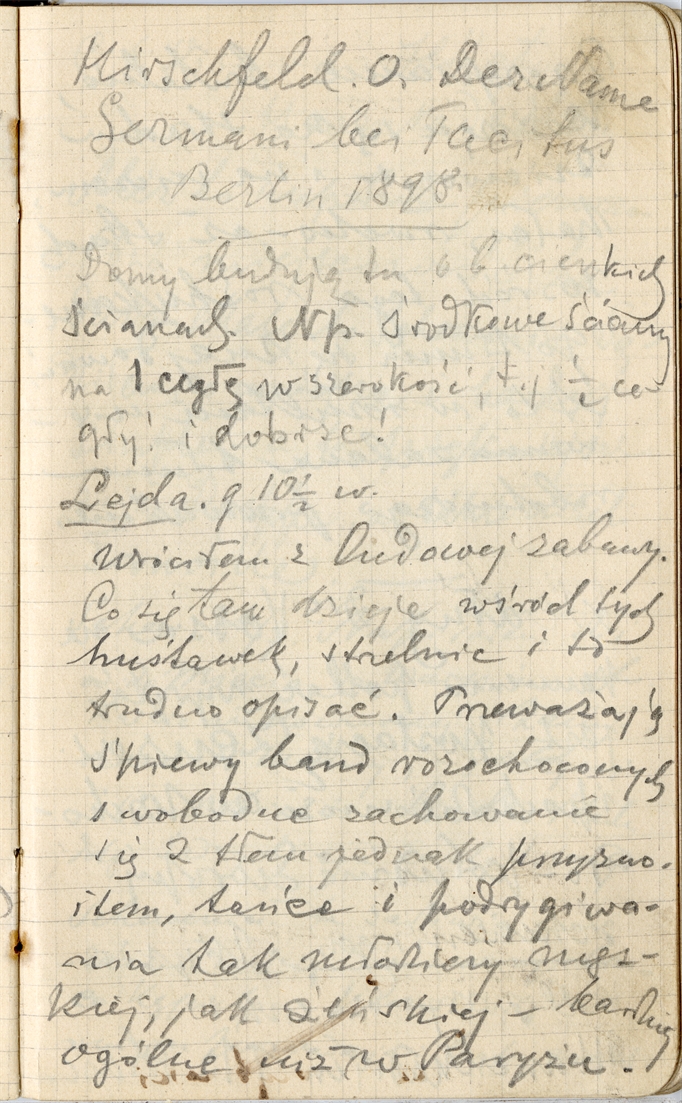 Hirschfeld. O. Der Name
Germani bei Tacitus
Berlin 1898.
Domy budują tu o b. cienkich
ścianach. Np. środkowe ściany
na 1 cegłę w szerokość, t.j. ½ ce-
gły! i dobrze!
Lejda. g 10½ w.
Wróciłem z ludowej zabawy.
Co się tam dzieje wśród tych
huśtawek, strzelnic i td
trudno opisać. Przeważają
śpiewy band rozochoconych
swobodne zachowanie
się z tłem jednak przyzwo-
item, tańce i podrygiwa-
nia tak młodzieży męs-
kiej, jak żeńskiej – bardziej
ogólne niż w Paryżu.